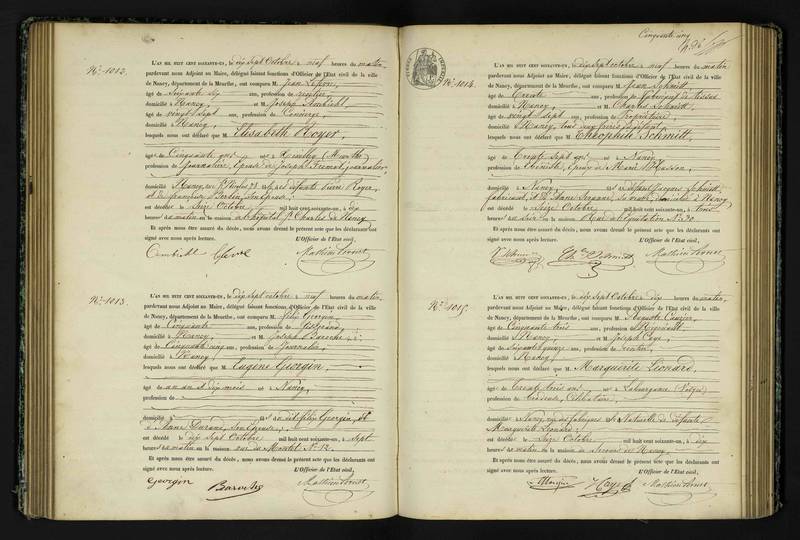 N.° 1012.
L'AN MIL HUIT CENT SOIXANTE-UN, le dix Sept Octobre à neuf heures du matin,
pardevant nous Adjoint au Maire, délégué faisant fonctions d'Officier de l'État civil de la ville
de Nancy, département de la Meurthe, ont comparu M. Jean
âgé de ans, profession de
domicilié à Nancy, et M. Joseph
âgé de vingt Sept ans, profession de Concierge,
domicilié à Nancy
lesquels nous ont déclaré que M. Elisabeth Royer,
âgé de Cinquante ans né à (Meurthe)
profession de Journalière, Epouse de Joseph journalier,
domicilié à Nancy, fille des défunts Pierre Royer,
et de Françoise
est décédé le Seize Octobre mil huit cent soixante-un, à dix
heures du matin en la maison à l'hôpital St Charles de Nancy
Et après nous être assuré du décès, nous avons dressé le présent acte que les déclarants ont
signé avec nous après lecture. L'Officier de l'État civil,
N.° 1013.
L'AN MIL HUIT CENT SOIXANTE-UN, le dix Sept Octobre à neuf heures du matin,
pardevant nous Adjoint au Maire, délégué faisant fonctions d'Officier de l'État civil de la ville
de Nancy, département de la Meurthe, ont comparu M. Félix Georgin,
âgé de Cinquante ans, profession de
domicilié à Nancy, et M. Joseph
âgé de Cinquante cinq ans, profession de Journalier,
domicilié à Nancy
lesquels nous ont déclaré que M. Eugène Georgin,
âgé de un an et dix mois né à Nancy,
profession de
domicilié à fils de Félix Georgin, et
de Anne Durand, Son Epouse;
est décédé le dix Sept Octobre mil huit cent soixante-un, à Sept
heures du matin en la maison rue de Montet N.° 12.
Et après nous être assuré du décès, nous avons dressé le présent acte que les déclarants ont
signé avec nous après lecture. L'Officier de l'État civil,
Georgin
Cinquante cinq
N.° 1014.
L'AN MIL HUIT CENT SOIXANTE-UN, le dix Sept octobre à neuf heures du matin
pardevant nous Adjoint au Maire, délégué faisant fonctions d'Officier de l'État civil de la ville
de Nancy, département de la Meurthe, ont comparu M. Jean Schmitt
âgé de Trente ans, profession de Fabricant de
domicilié à Nancy et M. Charles Schmitt,
âgé de vingt Sept ans, profession de Propriétaire,
domicilié à Nancy, tous deux frères du défunt,
lesquels nous ont déclaré que M. Théophile Schmitt,
âgé de Trente Sept ans né à Nancy
profession de Ebéniste, Epoux de Marie Masson,
domicilié à Nancy, fils de Jacques Schmitt,
est décédé le Seize Octobre mil huit cent soixante-un, à trois
heures du Soir en la maison Rue de l'équitation N.° 30
Et après nous être assuré du décès, nous avons dressé le présent acte que les déclarants ont
signé avec nous après lecture. L'Officier de l'État civil,
N.° 1015.
L'AN MIL HUIT CENT SOIXANTE-UN, le dix Sept Octobre à dix heures du matin,
pardevant nous Adjoint au Maire, délégué faisant fonctions d'Officier de l'État civil de la ville
de Nancy, département de la Meurthe, ont comparu M. Auguste
âgé de Cinquante trois ans, profession de
domicilié à Nancy et M. Joseph
âgé de Soixante quinze ans, profession de rentier,
domicilié à Nancy
lesquels nous ont déclaré que M. Marguerite Léonard,
âgé de Trente trois ans né à (Vosges)
profession de Brodeuse, Célibataire,
domicilié à Nancy, rue des fabriques fille Naturelle de défunte
Marguerite Léonard;
est décédé le Seize Octobre mil huit cent soixante-un, à dix
heures du matin en la maison de Secours de Nancy.
Et après nous être assuré du décès, nous avons dressé le présent acte que les déclarants ont
signé avec nous après lecture. L'Officier de l'État civil,